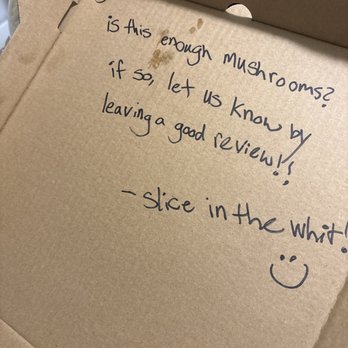 is this enough mushrooms?
if so, let us know by
leaving a good review!!
- slice in the whit!